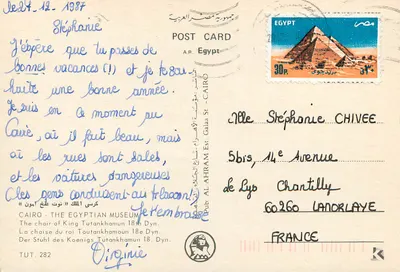 le 27. 12. 1987
Stéphanie
J'éspère que tu passes de
bonnes vacances (!) et je te sou-
haite une bonne année.
Je suis en ce moment au
Caire, où il fait beau, mais
où les rues sont sales,
et les voitures dangereuses
(les gens conduisent au klaxon)
Je t'embrasse
Virginie
كرسى الملك « توت عنخ آمون »
CAIRO - THE EGYPTIAN MUSEUM
The chair of King Tutankhamun 18e Dyn.
La chaise du roi Toutankhamoun 18e dyn.
Der Stuhl des Koenigs Tutenkhamun 18. Dyn.
TUT 282
جمهورية مصر العربية
POST CARD
A.R. Egypt
PUB. AL AHRAM Est. Galaa St - CAIRO
EGYPT مصر
30P. ٣٠م
Mlle Stéphanie CHIVEE
5bis, 14e Avenue
de Lys Chantilly
60260 LAMORLAYE
FRANCE
K